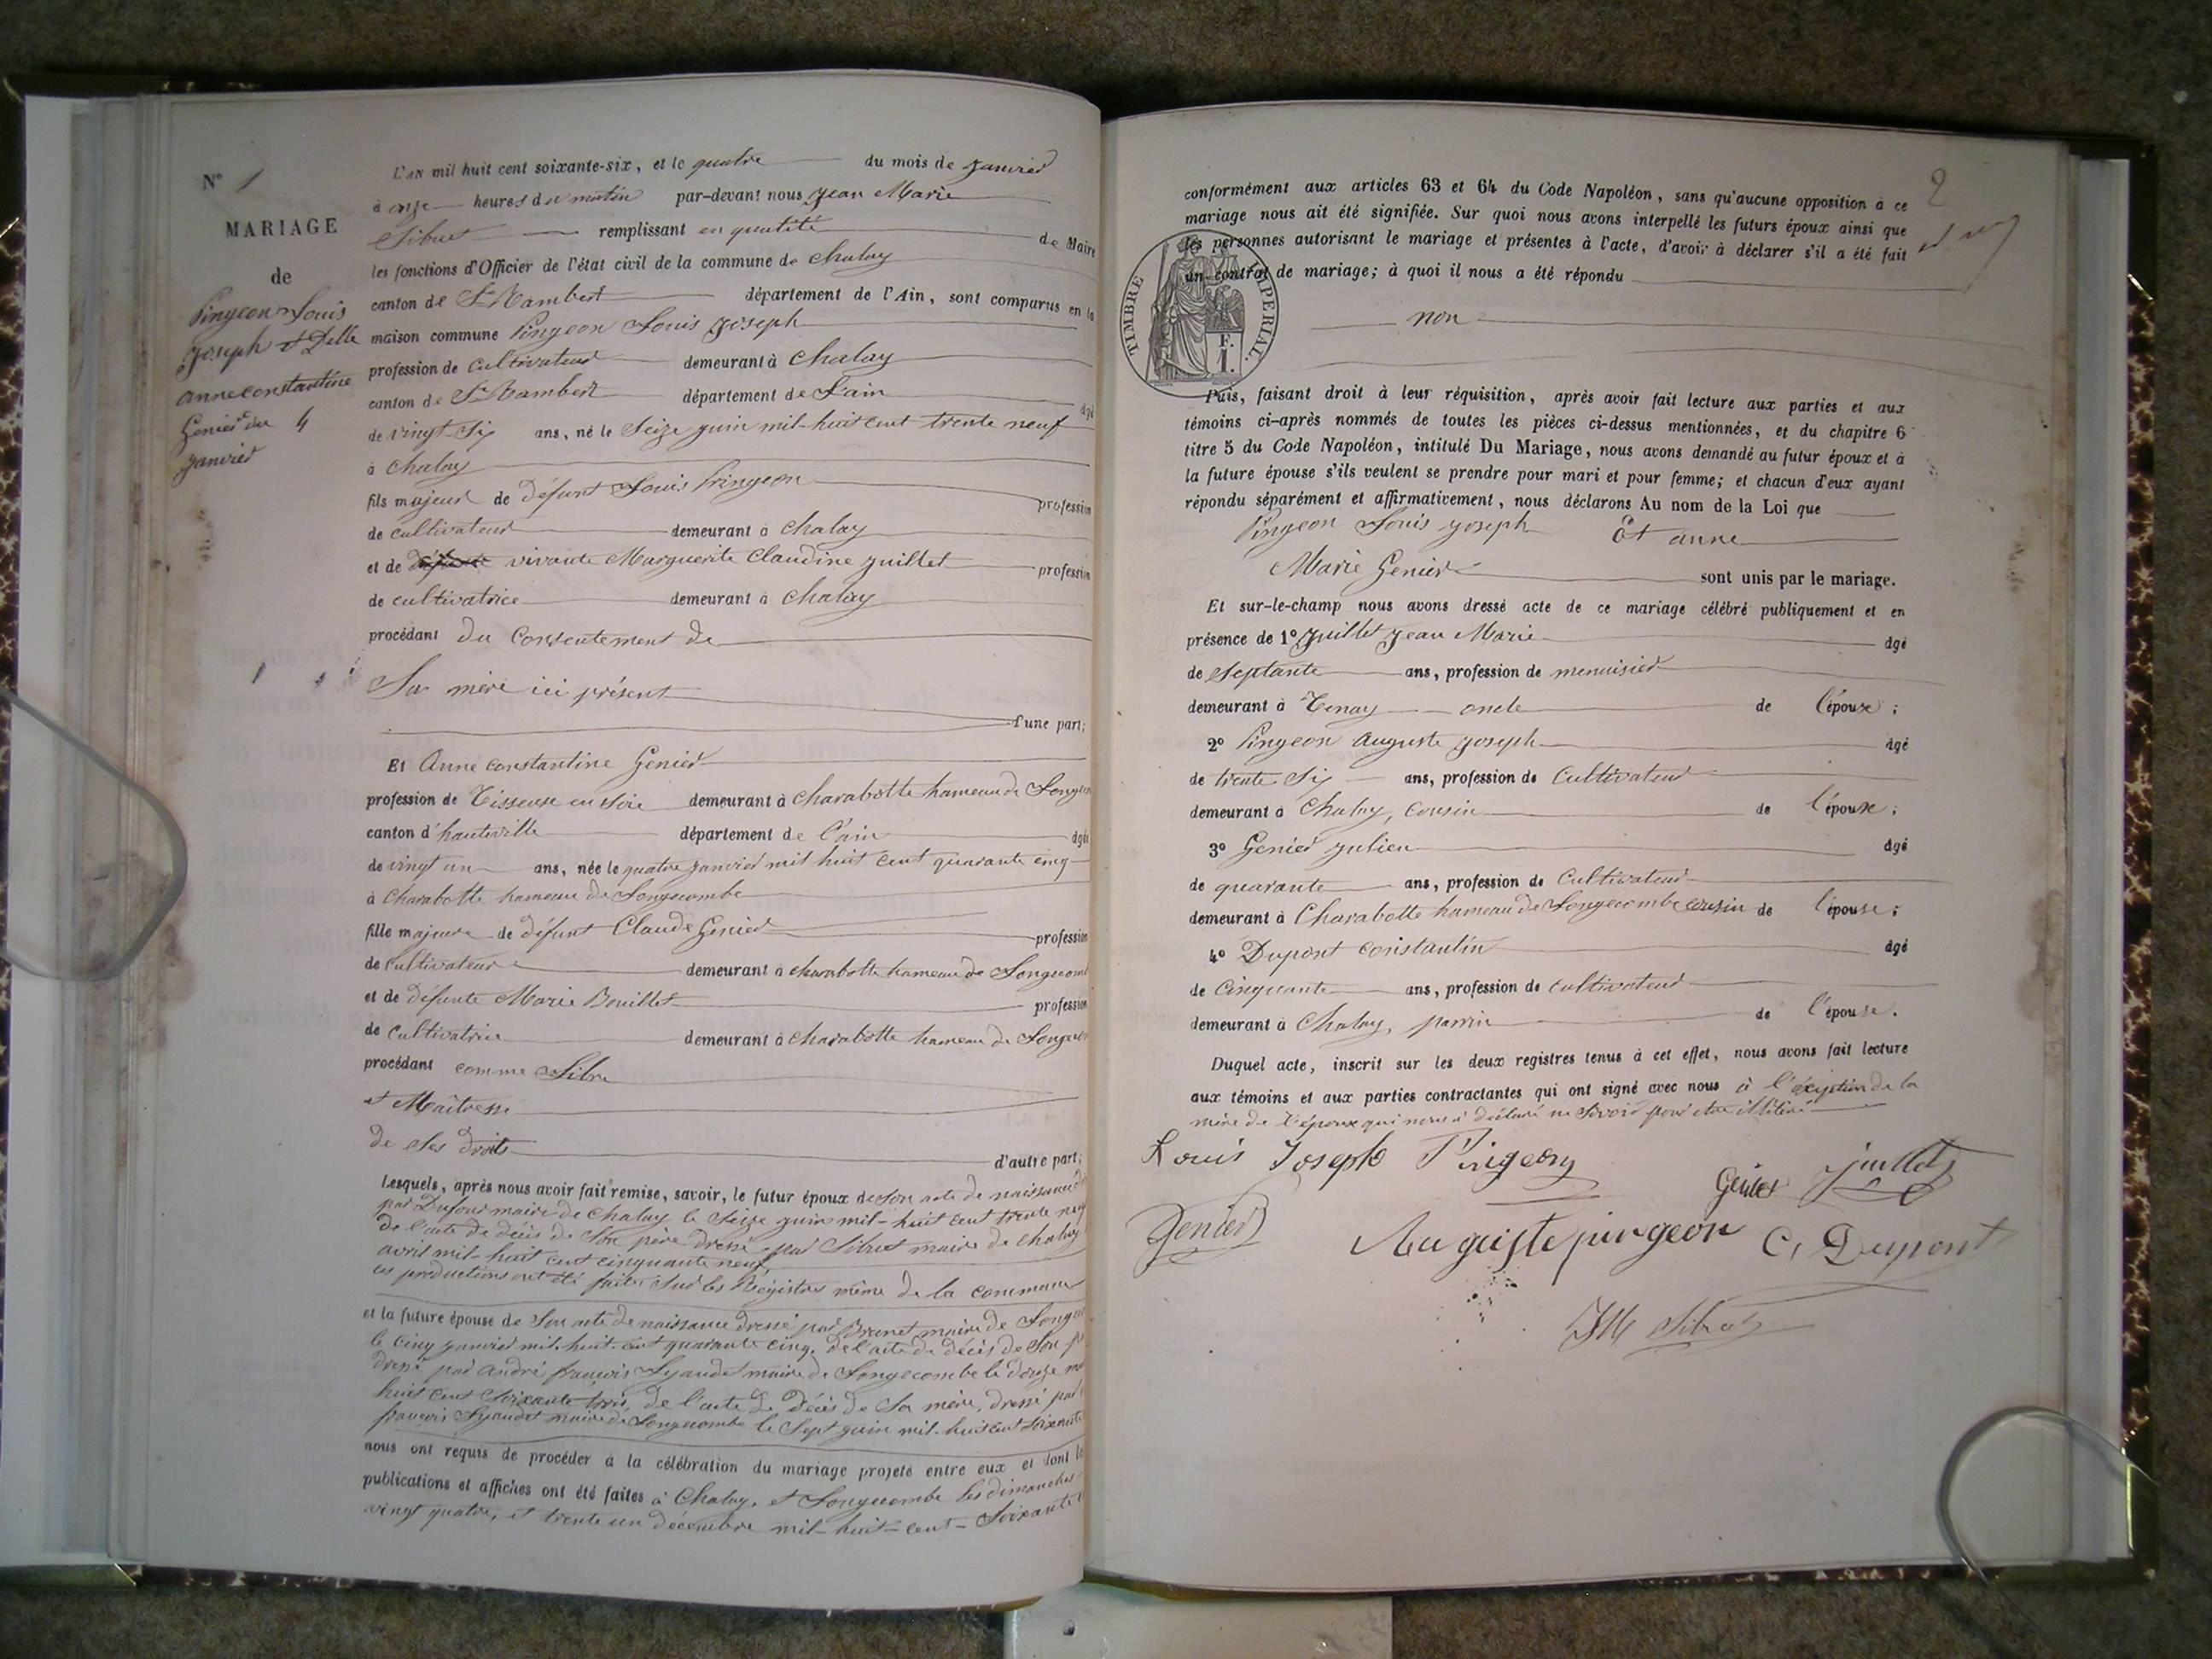 N° 1
MARIAGE
de
Pingeon Louis
Joseph et Delle
anne constantine
Genier du 4
janvier
L'AN mil huit cent soixante-six, et le quatre du mois de janvier
à onze heures du matin par-devant nous Jean Marie
Sibuet remplissant en quatité de Maire
les fonctions d'Officier de l'état civil de la commune de Chaley
canton de St Rambert département de l'Ain, sont comparus en la
maison commune Pingeon Louis Joseph
profession de Cultivateur demeurant à Chaley
canton de St Rambert département de L'ain âgé
de vingt-six ans, né le Seize juin mil-huit cent trente neuf
à Chaley
fils majeur de défunt Louis Pringeon profession
de cultivateur demeurant à Chaley
et de défunte vivante Marguerite Claudine juillet profession
de cultivatrice demeurant à Chaley
procédant du Consentement de
Sa mère ici présent
d'une part;
Et Anne constantine Genier
profession de Tisseuse en soie demeurant à charabotte hameau de
canton d'hauteville département de l'ain âgée
de vingt un ans, née le quatre janvier mil huit cent quarante cinq
à Charabotte hameau de Longecombe
fille majeure de défunt Claude Genier profession
de Cultivateur demeurant à charabotte hameau de
et de défunte Marie Bouillet profession
de Cultivatrice demeurant à charabotte hameau de
procédant comme Libre
et Maîtresse
de ses droits
d'autre part;
Lesquels, après nous avoir fait remise, savoir, le futur époux de son acte de naissance
par Dufour maire de Chaley le Seize juin mil-huit cent trente neuf
de l'acte de décis de son père dressé par Sibuet maire de Chaley
avril mil-huit cent cinquante neuf,
ces productions ont été faites sur les Régistres même de la commune
et la future épouse de son acte de naissance dressé par Brunet maire de
le cinq janvier mil-huit-cent quarante cinq, de l'acte de décis de son
dressé par andré françois maire de Longecombe le douze
huit cent soixante trois, de l'acte de Décis de sa mère, dressé par
françois maire de Longecombe le Sept juin mil-huit cent soixante
nous ont requis de procéder à la célébration du mariage projeté entre eux et dont les
publications et affiches ont été faites à Chaley, et Longecombe les dimanches
vingt quatre, et trente un décembre mil-huit-cent-soixante
2
conformément aux articles 63 et 64 du Code Napoléon, sans qu'aucune opposition à ce
mariage nous ait été signifiée. Sur quoi nous avons interpellé les futurs époux ainsi que
les personnes autorisant le mariage et présentes à l'acte, d'avoir à déclarer s'il a été fait
un contrat de mariage; à quoi il nous a été répondu
TIMBRE IMPERIAL.
F.
1.
non
Puis, faisant droit à leur réquisition, après avoir fait lecture aux parties et aux
témoins ci-après nommés de toutes les pièces ci-dessus mentionnées, et du chapitre 6
titre 5 du Code Napoléon, intitulé Du Mariage, nous avons demandé au futur époux et à
la future épouse s'ils veulent se prendre pour mari et pour femme; et chacun d'eux ayant
répondu séparément et affirmativement, nous déclarons Au nom de la Loi que
Pingeon Louis joseph Et anne
Marie Genier sont unis par le mariage.
Et sur-le-champ nous avons dressé acte de ce mariage célébré publiquement et en
présence de 1° Juillet Jean Marie âgé
de Septante ans, profession de menuisier
demeurant à Tenay oncle de l'épouse;
2° Pingeon Auguste joseph âgé
de trente six ans, profession de Cultivateur
demeurant à Chaley, cousin de l'épouse;
3° Genier julien âgé
de quarante ans, profession de Cultivateur
demeurant à Charabotte hameau de Longecombe cousin de l'épouse;
4° Dupont constantin âgé
de Cinquante ans, profession de Cultivateur
demeurant à Chaley, parrin de l'épouse.
Duquel acte, inscrit sur les deux registres tenus à cet effet, nous avons fait lecture
aux témoins et aux parties contractantes qui ont signé avec nous à l'éxeption de la
mère de l'époux qui nous a déclaré ne Savoir pour être illitiré
Louis Joseph Pingeon
Genier juillet
Genier
Auguste pingeon C, Dupont
JM Sibuet